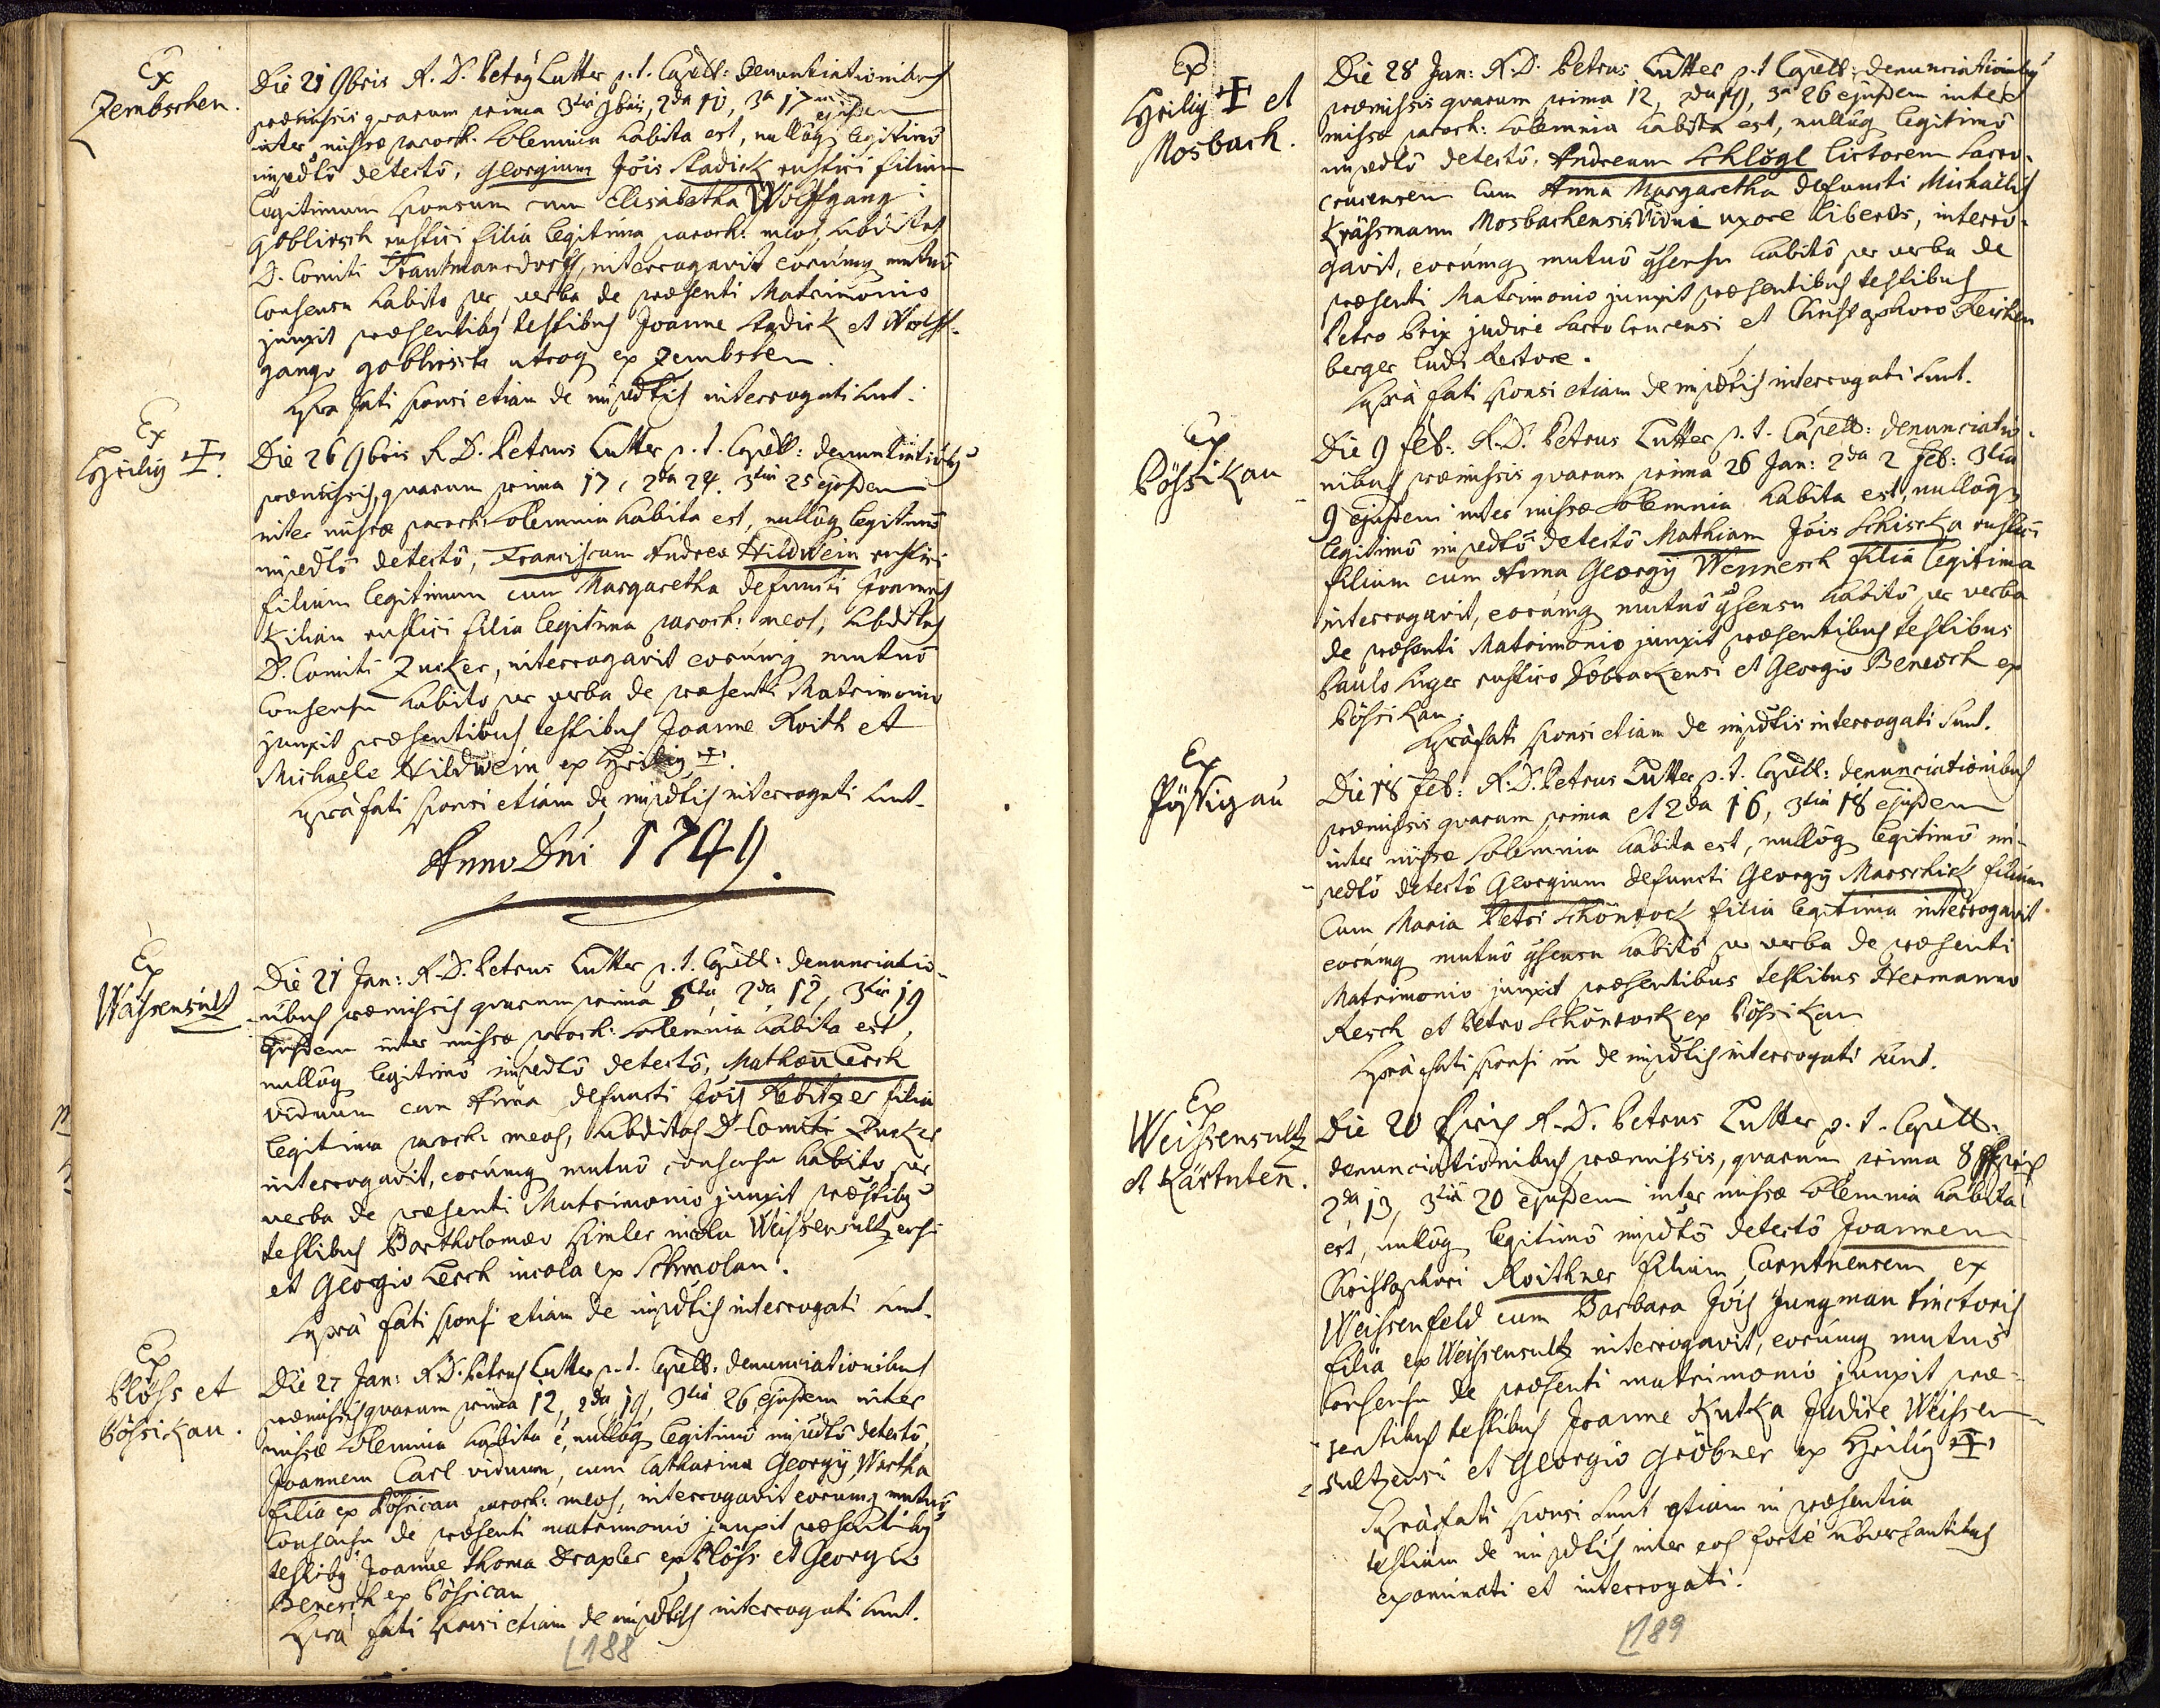 Ex
Zembschen.
Die 21 9bris R. D. Petrus Lutter p. t. Capell: denuntiationibus
præmissis quarum prima 3tia 9bris, 2da 10, 3a 17ma ejusdem
inter missæ paroch: solemnia habita est, nullôq legitimô
impedtô detectô, Georgium Jöis Stadick rustici filium
legitimum sponsum cum Elisabetha Wolffgang
Gobliersch rustici filiâ legitimâ paroch: meos, subditos
D. Comiti Trautmansdorff, interrogavit eorúmq mutuô
Consensu habito per verba de præsenti Matrimonio
junxit præsentibq testibus Joanne Stadick et Wolff-
gango gobliersch utroq ex Zembschen.
Supra fati sponsi etiam de impedtis interrogati sunt.
Ex
Heilig ✝.
Die 26 9bris R. D. Petrus Lutter p. t. Capell: denuntiationibq
præmissis, quarum prima 17, 2da 24. 3tia 25 ejusdem
inter missæ paroch: solemnia habita est, nullôq legitimô
impedtô detectô, Franciscum Andreæ Hildwein rustici
filium legitimum cum Margaretha defuncti Joannis
Kilian rustici filia legitima paroch: meos, subditos
D. Comiti Zucker, interrogavit eorúmq mutuô
Consensu habito per verba de præsenti Matrimonio
junxit præsentibus testibus Joanne Roith et
Michaele Hildwein ex Heilig ✝.
Supràfati sponsi etiam de impedtis interrogati sunt.
Anno Dni 1749.
Ex
Wassersultz
Die 21 Jan: R. D. Petrus Lutter p. t. Capell: denunciatio-
nibus præmissis quarum prima 2da 12, 3tia 19
ejusdem inter missæ paroch: solemnia habita est,
nullôq legitimô impedtô detectô, Mathæu Lerch
viduum cum Anna defuncti Jöis Rebitzer filia
legitima paroch: meos, subditos D. Comiti Zucker
interrogavit, eorúmq mutuô consensu habito per
verba de præsenti Matrimonio junxit præstibq
testibus Bartholomæo Himler incola Weissensultzensi
et Georgio Lerch incola ex Schmolau.
Suprà fati sponsi etiam de impedtis interrogati sunt.
Ex
Plöss et
Pössikau.
Die 27 Jan: R. D. Petrus Lutter p. t. Capell: denunciationibus
præmissis quarum prima 12, 2da 19, 3tia 26 ejusdem inter
missæ solemnia habita è, nullôq legitimô impedtô detectô
Joannem Carl viduum, cum Catharina Georgÿ Wartha
filia ex Pössicau paroch: meos, interrogavit eorumq mutuô
Consensu de præsenti matrimonio junxit præsentibq
testibq Joanne Thoma Draxler ex Plöss et Georgio
Benesch ex Pössicau
Suprà fati sponsi etiam de impedtis interrogati sunt.
188
Ex
Heilig ✝ et
Mosbach.
Die 28 Jan: R. D. Petrus Lutter p. t. Capell: denunciationibq
præmissis quarum prima 12, 2da 19, 3a 26 ejusdem inter
missæ paroch: solemnia habita est, nullôq legitimô
impedtô detectô, Andream Schlögl lictorem Sacro-
crucensem cum Anna Margaretha defuncti Michaëlis
Krässmann Mosbachensis vidua uxore liberos, interro-
gavit, eorúmq mutuô gsensu habitô per verba de
præsenti Matrimonio junxit præsentibus testibus
Petro Brix judice Sacro Crucensi et Christophoro Reichen
berger ludi Rectore.
Suprà fati sponsi etiam de impedtis interrogati sunt.
Ex
Pössikau
Die 9 Feb: R. D. Petrus Lutter p. t. Capell: denunciatio-
nibus præmissis quarum prima 26 Jan: 2da 2 Feb: 3tia
9 ejusdem inter missæ solemnia habita est, nullôq
legitimô impedtô detectô Mathiam Jöis Schiska rustici
filium cum Anna Georgÿ Wennesch filiâ legitima
interrogavit, eorúmq mutuô gsensu habitô per verba
de præsenti Matrimonio junxit præsentibus testibus
Paulo Luger rustico Dobrackensi et Georgio Benesch ex
Pössikau.
Supràfati sponsi etiam de impedtis interrogati sunt.
Ex
Pössigau
Die 18 Feb: R. D. Petrus Lutter p. t. Capell: denunciationibus
præmissis quarum prima et 2da 16, 3tia 18 ejusdem
inter missæ solemnia habita est, nullôq legitimô im-
pedtô detectô Georgium defuncti Georgÿ Marschick filium
Cum Maria Petri Schönrock filia legitima interrogavit
eorúmq mutuô gsensu habitô per verba de præsenti
Matrimonio junxit præsentibus testibus Hermanno
Resch et Petro Schönrock ex Pössikau
Supràfati sponsi de impedtis interrogati sunt.
Ex
Weissensultz
et Kärnten.
Die 20 R. D. Petrus Lutter p. t. Capell:
denunciationibus præmissis, quarum prima 8
2da 13, 3tiâ 20 ejusdem inter missæ solemnia habita
est, nullôq legitimô impedtô detectô Joannem
Christophori Roithner filium Carntnensem ex
Weissenfeld cum Barbara Jöis Jungman tinctoris
filia ex Weissensultz interrogavit, eorúmq mutuô
Consensu de præsenti matrimonio junxit præ-
sentibus testibus Joanne Kutka Judice Weissen-
sultzensi et Georgio Gröbner ex Heilig ✝
Supràfati sponsi sunt etiam in præsentia
testium de impedtis inter eos fortè ubversantibus
examinati et interrogati.
189